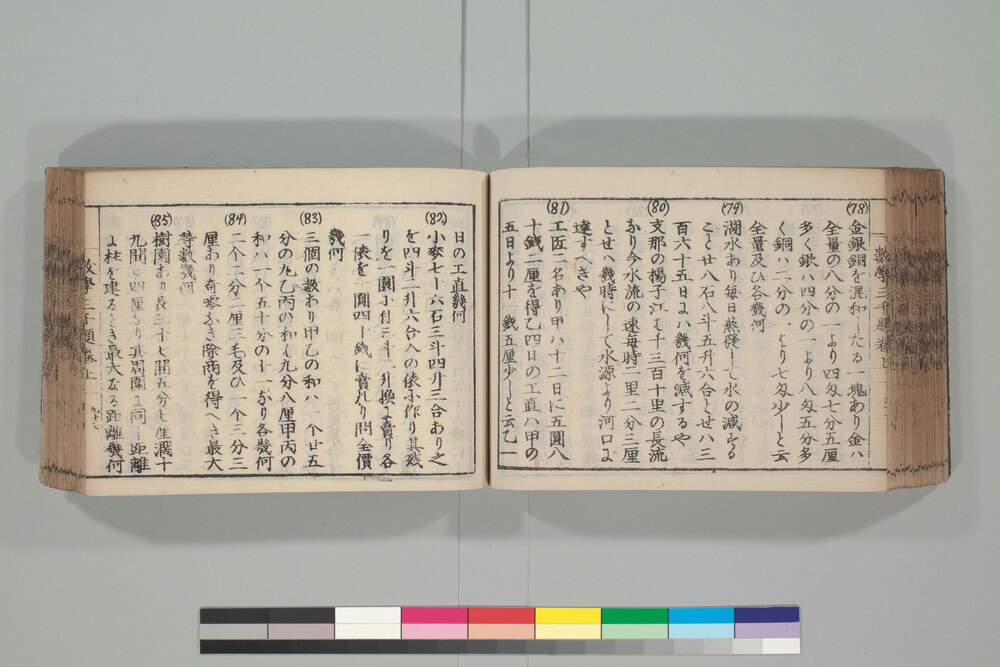 (78)
金銀銅を混和したる一塊あり金ハ
全量の八分の一より四匁七分五厘
多く銀ハ四分の一より八匁五分多
く銅ハ二分の一より七匁少しと云
全量及ひ各幾何
(79)
湖水あり毎日蒸発して水の減する
こと廿八石八斗五升六合とせハ三
百六十五日にハ幾何を減するや
(80)
支那の楊子江は千三百十里の長流
なり今水流の速毎時二里二分三厘
とせハ幾時にして水源より河口に
達すへきや
(81)
工匠二名あり甲ハ十二日に五圓八
十銭二厘を得乙四日の工直ハ甲の
五日より十一銭五厘少しと云乙一
日の工直幾何
(82)
小麥七十六石三斗四升三合あり之
を四斗二升六合入の俵に作り其残
りを一圓に付三斗一升換に賣り各
一俵を一圓四十銭に賣れり問全價
幾何
(83)
三個の數あり甲乙の和ハ一个廿五
分の九乙丙の和は九分八厘甲丙の
和ハ一个五十分の十一なり各幾何
(84)
二个二分二厘三毛及ひ一个三分三
厘あり奇零なき除商を得へき最大
等數幾何
(85)
樹園あり長三十七間五分七厘濶十
九間〇四厘なり其周圍に同し距離
に柱を建るとき最大なる距離幾何
數學三千題卷上